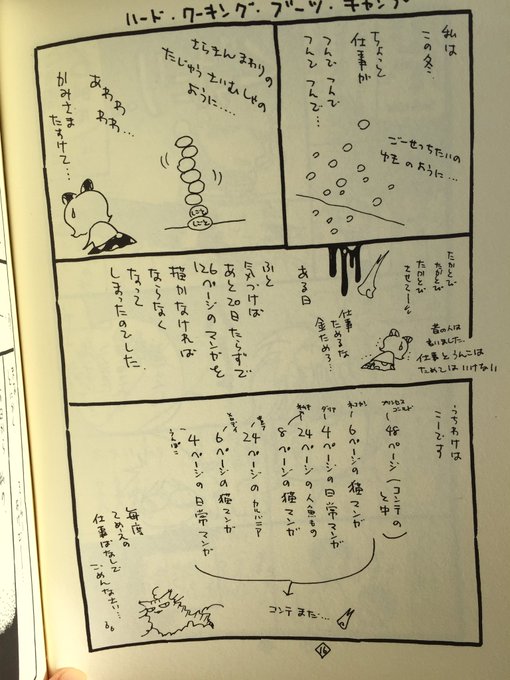 ハード・ワーキング・ブーツ・キャンプ
私は
この冬
ちょっと
仕事が
つんで つんで
つんで つんで…
ごーせっちたいの
ゆきのように…
さらきんまわりの
たじゅうさいむしゃの
ように…
あわわ
わわ…
かみさま
たすけて…
しごと
しごと
たかとび
たかとび
たかとび
させてーっ
ある日
仕事
ためるな
金ためろ…
昔の人は
言いました。
仕事とうんこは
ためてはいけない
ふと
気づけば
あと20日たらずで
126ページのマンガを
描かなければ
ならなく
なって
しまったのでした。
うちわけは
こーです
プリンセス
ゴールド
48ページ(コンテの
と中)
ネコかん
6ページの猫マンガ
4ページの日常マンガ
24ページの人魚もの
8ページの猫マンガ
24ページのカルバニア
6ページの猫マンガ
4ページの日常マンガ
コンテまだ…
毎度
てめえの
仕事ばなしで
ごめんなさい…
16